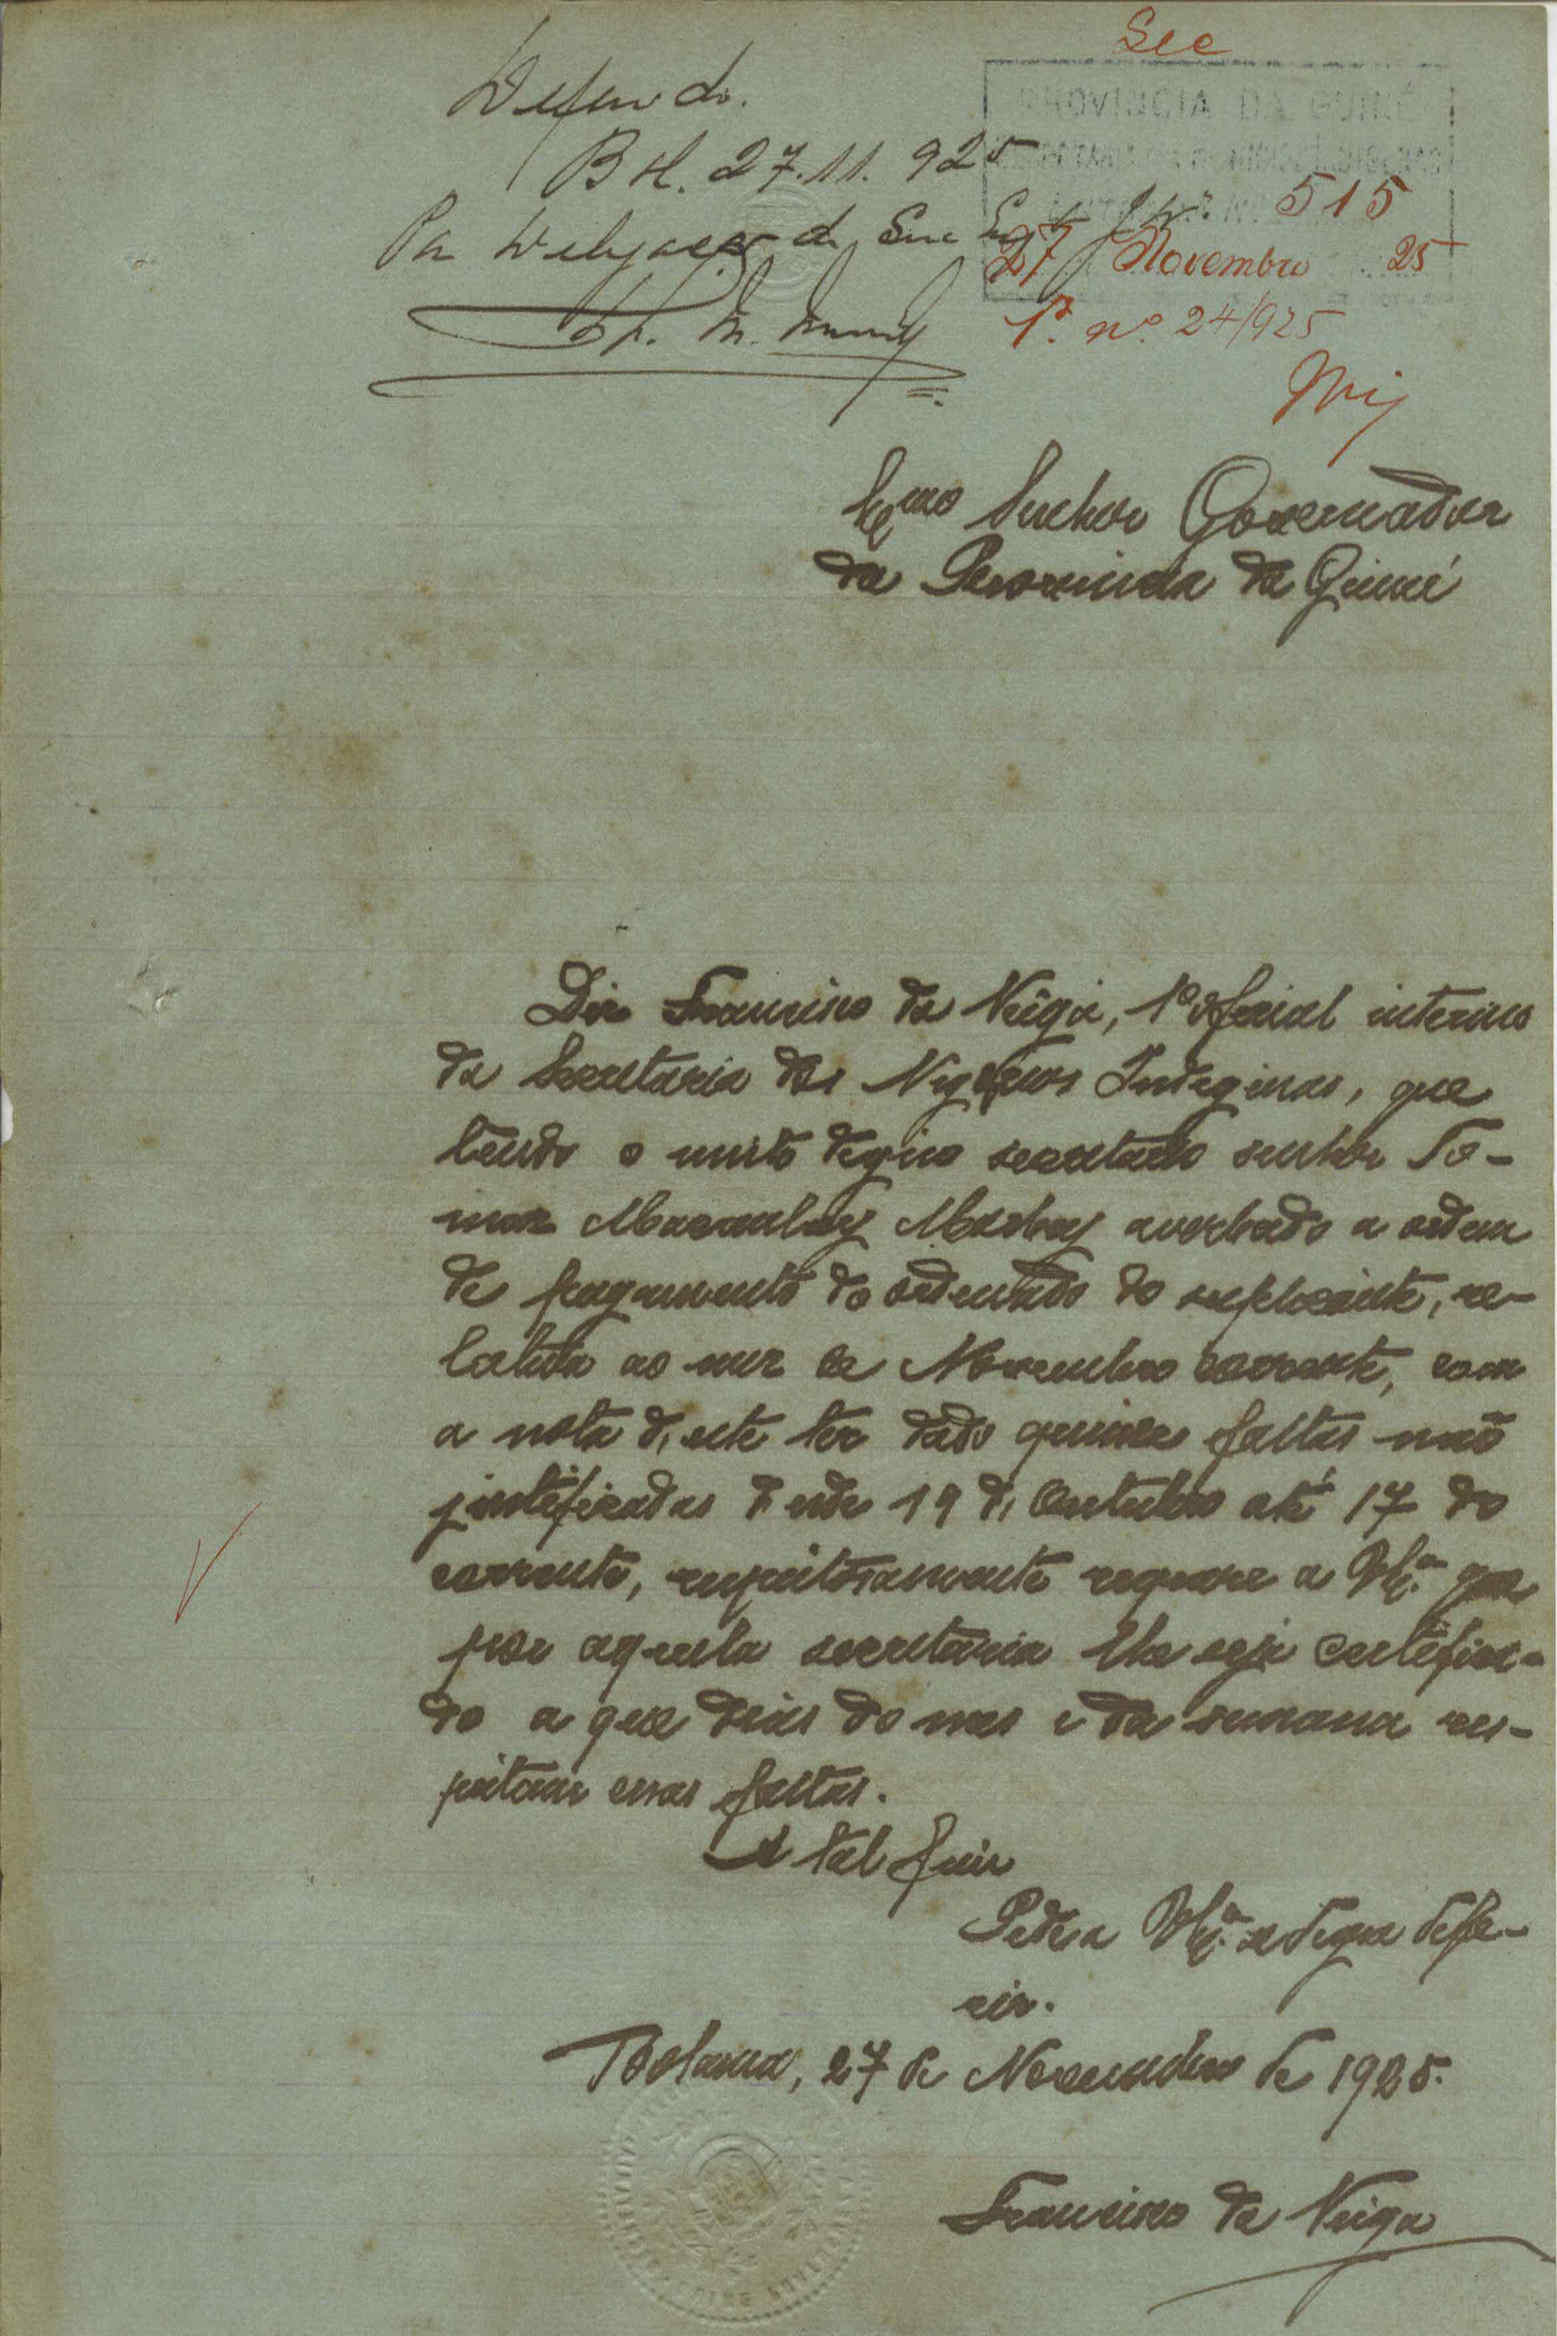 Sec
Deferido.
Bol. 27.11.925
PROVINCIA DA GUINÉ
Por Delegação de Sua Exª
Nº 515
27 Novembro 25
Pº. nº. 24/925
Exmo Senhor Governador
da Provincia da Guiné
Diz Francisco da Veiga, 1º oficial interino
da Secretaria dos Negócios Indeginas, que
tendo o muito degno secretario senhor To-
maz Macaulay Mackay averbado a ordem
de pagamento do ordenado do suplicante, re-
lativa ao mez de Novembro corrente, com
a nota d'este ter dado quinze faltas não
justeficadas desde 19 de Outubro até 17 do
corrente, respeitosamente requere a V. Exª. que
pela aquela secretaria lhe seja certefica-
do a que dias do mes e da semana res-
peitam essas faltas.
A tal fim
Pede a V. Exª. se degne defe-
rir.
Bolama, 27 de Novembro de 1925.
Francisco da Veiga